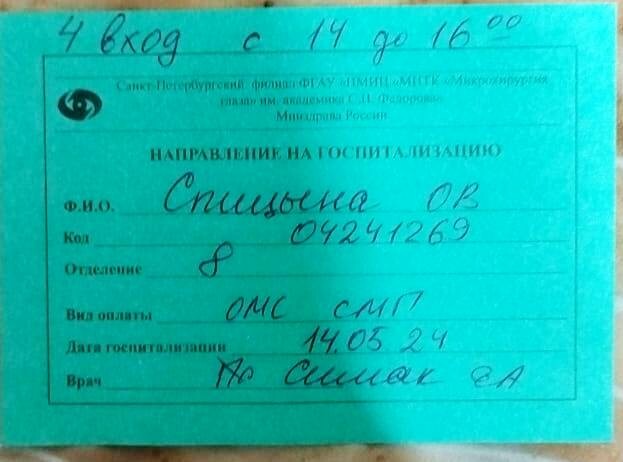 4 вход с 14 до 16 00
Санкт-Петербургский филиал ФГАУ «НМИЦ «МНТК «Микрохирургия
глаза» им. академика С.Н. Федорова»
Минздрава России
НАПРАВЛЕНИЕ НА ГОСПИТАЛИЗАЦИЮ
Ф.И.О. Спицына ОВ
Код 04241269
Отделение 8
Вид оплаты ОМС СМП
Дата госпитализации 14.05 24
Врач Симак